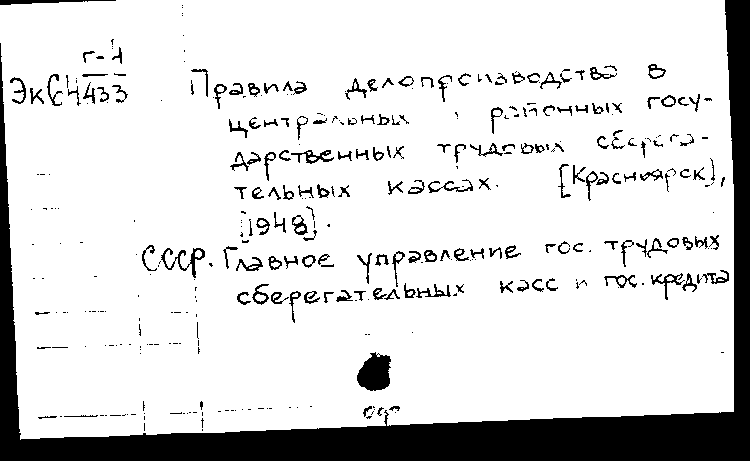 г-4
Эк64433
Правила делопроизводства в
центральных, районных госу-
дарственных трудовых сберега-
тельных кассах. [Красноярск],
[1948].
СССР. Главное управление гос. трудовых
сберегательных касс и гос. кредита